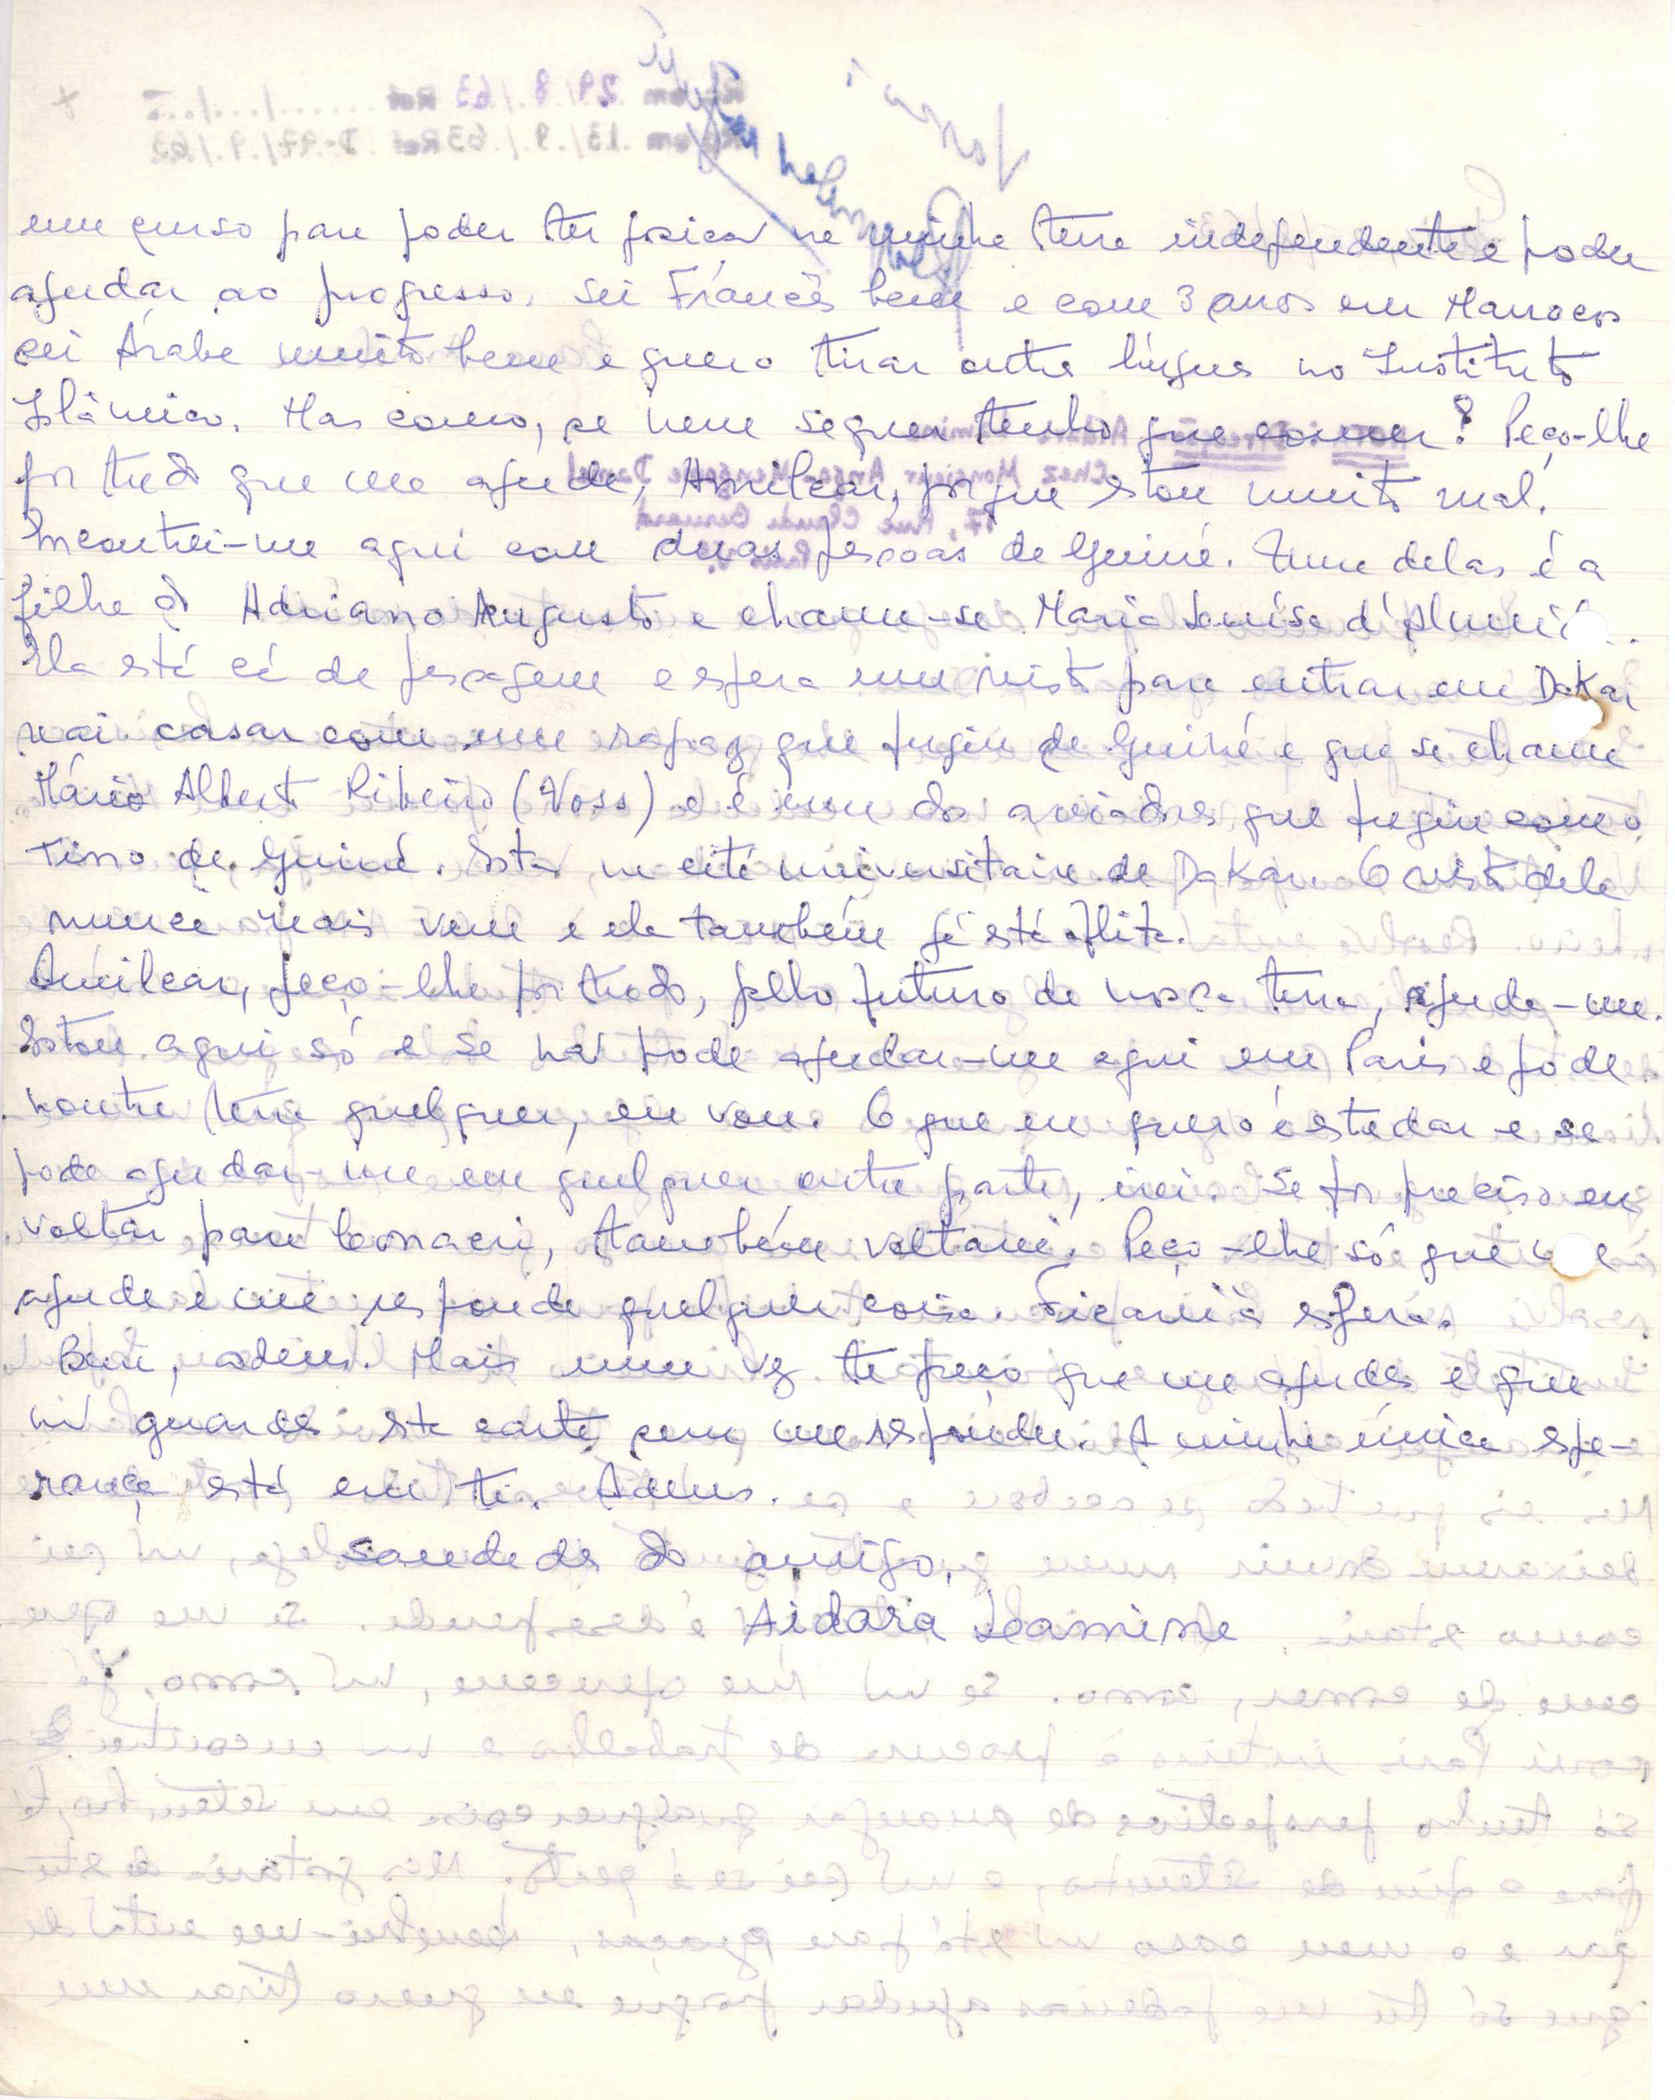 um curso para poder ter posição na minha terra independente e poder
ajudar ao progresso. Sei Francês bem e com 3 anos em Marrocos
sei Árabe muito bem e quero tirar outra língua no Instituto
Islâmico. Mas como, se nem sequer tenho que comer? Peço-lhe
por tudo que me ajude, Amilcar, porque estou muito mal.
Encontrei-me aqui com duas pessoas de Guiné. Uma delas é a
filha do Adriano Augusto e chama-se Maria Louísa d'
Ela está cá de passagem e espera um visto para entrar em Dakar
vai casar com um rapaz que fugiu de Guiné e que se chama
Mário Alberto Ribeiro (Voss) e é um dos aviadores que fugiu com o
Tino de Guiné. Esta na cité universitaire de Dakar. O visto dela
nunca mais vem e ela também já está aflita.
Amilcar, peço-lhe por tudo, pelo futuro de nossa terra, ajude-me.
Estou aqui só e se não pode ajudar-me aqui em Paris e pode
noutra terra qualquer, eu vou. O que eu quero é estudar e se
pode ajudar-me em qualquer outra parte, irei. Se for preciso eu
voltar para Conacri, também voltarei. Peço-lhe só que me
ajude e me responda qualquer coisa. Ficarei à espera.
Bem, adeus. Mais uma vez te peço que me ajudes e que
não guardes esta carta sem me responder. A minha única espe-
rança está em ti. Adeus.
saudades do amigo,
Aidara Lamine